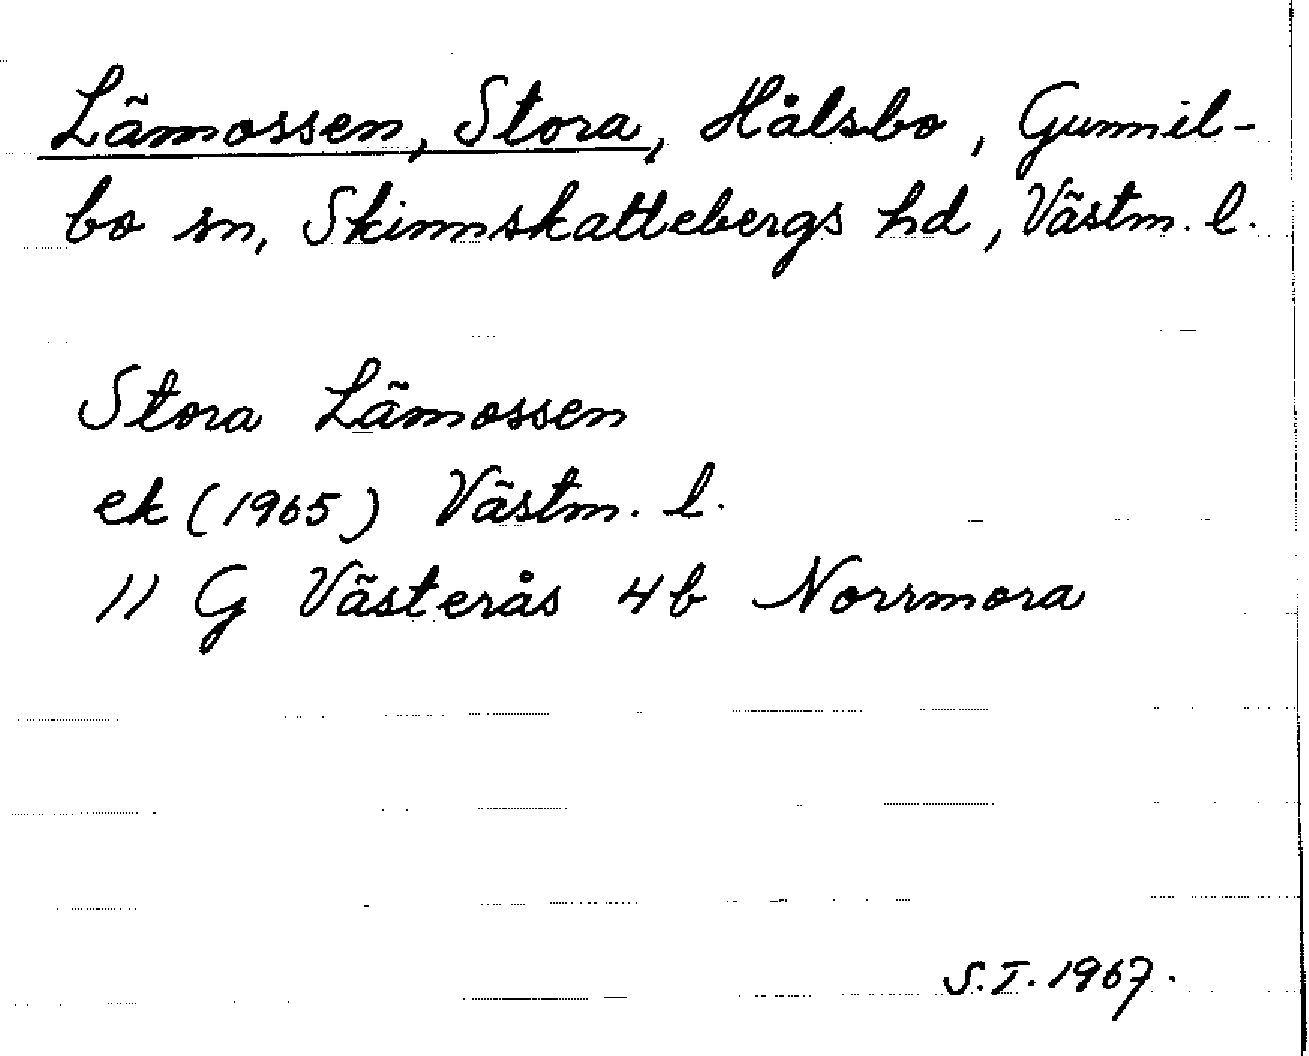 Lämossen, Stora, Hålsbo, Gunnil-
bo sn, Skinnskattebergs hd, Västm. l.
Stora Lämossen
ek (1965) Västm. l.
11 G Västerås 4b Norrmora
S.I. 1967.